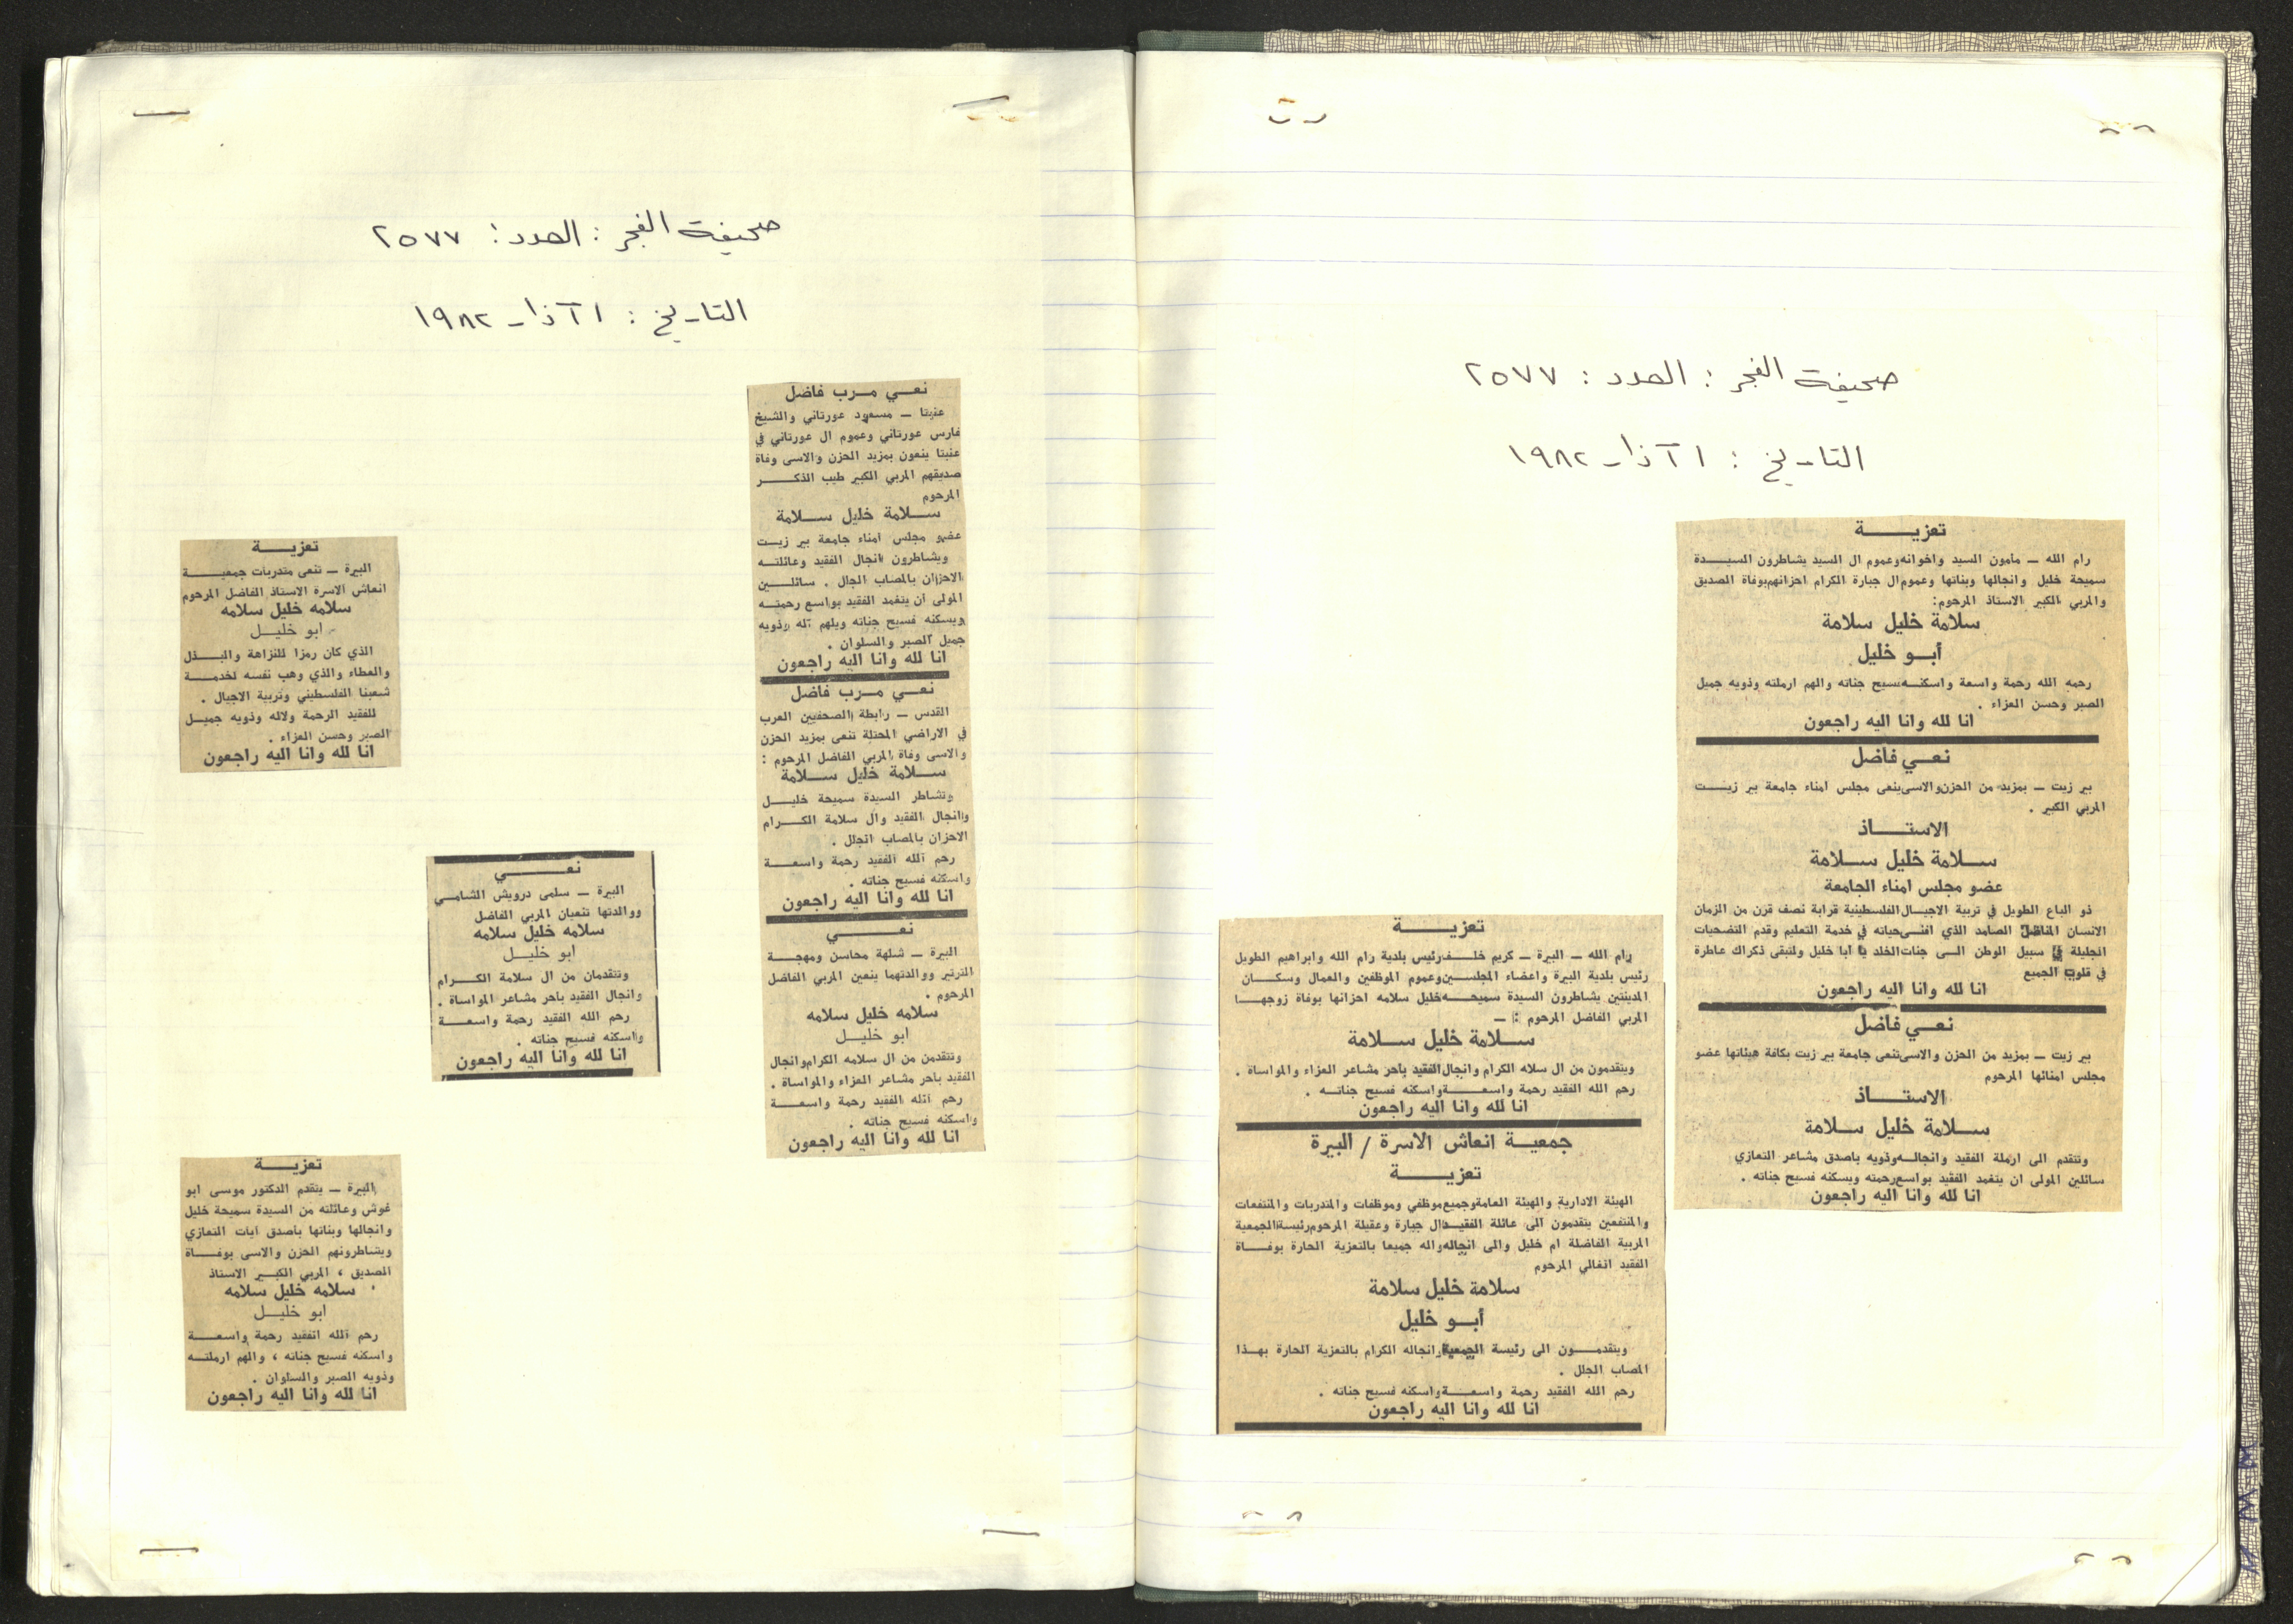 صحيفة الفجر : العدد : ٢٥٧٧
التاريخ : ١ آذار ١٩٨٢
تعزيــــة
رام الله – مأمون السيد واخوانه وعموم ال السيد يشاطرون السيـــدة
سميحة خليل وانجالها وبناتها وعموم ال جبارة الكرام احزانهم بوفاة الصديق
والمربي الكبير الاستاذ المرحوم:
سلامة خليل سلامة
أبــو خليل
رحمه الله رحمة واسعة واسكنــه فسيح جناته والهم ارملته وذويه جميل
الصبر وحسن العزاء .
انا لله وانا اليه راجعون
نعــي فاضل
بير زيت – بمزيد من الحزن والاسى ينعى مجلس امناء جامعة بير زيـــت
المربي الكبير .
الاستــــاذ
ســلامة خليل ســلامة
عضو مجلس امناء الجامعة
ذو الباع الطويل في تربية الاجيــال الفلسطينية قرابة نصف قرن من الزمان
الانسان المناضل الصامد الذي افنــى حياته في خدمة التعليم وقدم التضحيات
الجليلة في سبيل الوطن الــى جنات الخلد يا ابا خليل ولتبقى ذكراك عاطرة
في قلوب الجميع
انا لله وانا اليه راجعون
نعــي فاضل
بير زيت – بمزيد من الحزن والاسى تنعى جامعة بير زيت بكافة هيئاتها عضو
مجلس امنائها المرحوم
الاستــــاذ
ســلامة خليل ســلامة
وتتقدم الى ارملة الفقيد وانجالــه وذويه باصدق مشاعر التعازي
سائلين المولى ان يتغمد الفقيد بواسع رحمته ويسكنه فسيح جناته .
انا لله وانا اليه راجعون
تعزيــــة
رام الله – البيرة – كريم خلــف رئيس بلدية رام الله وابراهيم الطويل
رئيس بلدية البيرة واعضاء المجلسين وعموم الموظفين والعمال وسكــان
المدينتين يشاطرون السيدة سميحــه خليل سلامه احزانها بوفاة زوجهــا
المربي الفاضل المرحوم : –
ســلامة خليل سلامة
ويتقدمون من ال سلاه الكرام وانجال الفقيد باحر مشاعر العزاء والمواساة .
رحم الله الفقيد رحمة واسعــــة واسكنه فسيح جناتــه .
انا لله وانا اليه راجعون
جمعيــة انعاش الاسرة / البيرة
تعزيــــة
الهيئة الادارية والهيئة العامة وجميع موظفي وموظفات والمتدربات والمنتفعات
والمنتفعين يتقدمون الى عائلة الفقيــد ال جبارة وعقيلة المرحوم رئيسة الجمعية
المربية الفاضلة ام خليل والى انجاله واله جميعا بالتعزية الحارة بوفـــاة
الفقيد الغالي المرحوم
سلامة خليل سلامة
أبــو خليل
ويتقدمــــون الى رئيسة الجمعية وانجاله الكرام بالتعزية الحارة بهــذا
المصاب الجلل .
رحم الله الفقيد رحمة واسعـــة واسكنه فسيح جناته .
انا لله وانا اليه راجعون
صحيفة الفجر : العدد : ٢٥٧٧
التاريخ : ١ آذار ١٩٨٢
نعــي مــرب فاضل
عنبتا – مسعود عورتاني والشيخ
فارس عورتاني وعموم ال عورتاني في
عنبتا ينعون بمزيد الحزن والاسى وفاة
صديقهم المربي الكبير طيب الذكـــر
المرحوم
ســلامة خليل ســلامة
عضو مجلس امناء جامعة بير زيــت
ويشاطرون انجال الفقيد وعائلتــه
الاحزان بالمصاب الجلل . سائلـــين
المولى ان يتغمد الفقيد بواسع رحمتــه
ويسكنه فسيح جناته ويلهم آله وذويه
جميل الصبر والسلوان .
انا لله وانا اليه راجعون
نعــي مــرب فاضل
القدس – رابطة الصحفيين العرب
في الاراضي المحتلة تنعى بمزيد الحزن
والاسى وفاة المربي الفاضل المرحوم :
ســلامة خليل ســلامة
وتشاطر السيدة سميحة خليـــل
وانجال الفقيد وال سلامة الكـــرام
الاحزان بالمصاب الجلل .
رحم الله الفقيد رحمة واسعـــة
واسكنه فسيح جناته .
انا لله وانا اليه راجعون
نعـــــي
البيرة – شلهة محاسن ومهجـــة
الترتير ووالدتهما ينعين المربي الفاضل
المرحوم .
سلامه خليل سلامه
ابو خليــل
وتتقدمن من ال سلامه الكرام وانجال
الفقيد باحر مشاعر العزاء والمواساة .
رحم الله الفقيد رحمة واسعـــة
واسكنه فسيح جناته .
انا لله وانا اليه راجعون
تعزيــــة
البيرة – تنعى متدربات جمعيـــة
انعاش الاسرة الاستاذ الفاضل المرحوم
سلامه خليل سلامه
ابو خليــل
الذي كان رمزا للنزاهة والبــذل
والعطاء والذي وهب نفسه لخدمـــة
شعبنا الفلسطيني وتربية الاجيال .
للفقيد الرحمة ولاله وذويه جميــل
الصبر وحسن العزاء .
انا لله وانا اليه راجعون
نعـــــي
البيرة – سلمى درويش الشامــي
ووالدتها تنعيان المربي الفاضل
سلامه خليل سلامه
ابو خليــل
وتتقدمان من ال سلامة الكـــرام
وانجال الفقيد باحر مشاعر المواساة .
رحم الله الفقيد رحمة واسعـــة
واسكنه فسيح جناته .
انا لله وانا اليه راجعون
تعزيــــة
البيرة – يتقدم الدكتور موسى ابو
غوش وعائلته من السيدة سميحة خليل
وانجالها وبناتها باصدق ايات التعازي
ويشاطرونهم الحزن والاسى بوفـــاة
الصديق ، المربي الكبــير الاستاذ
سلامه خليل سلامه
ابو خليــل
رحم الله الفقيد رحمة واسعـــة
واسكنه فسيح جناته ، والهم ارملتــه
وذويه الصبر والسلوان .
انا لله وانا اليه راجعون